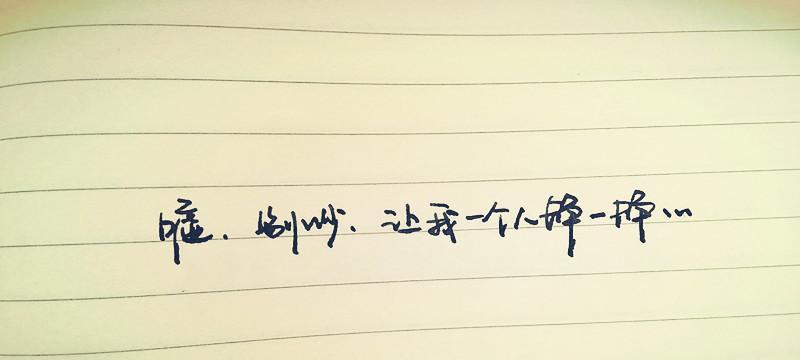 嘘.别吵.让我一个人静一静...